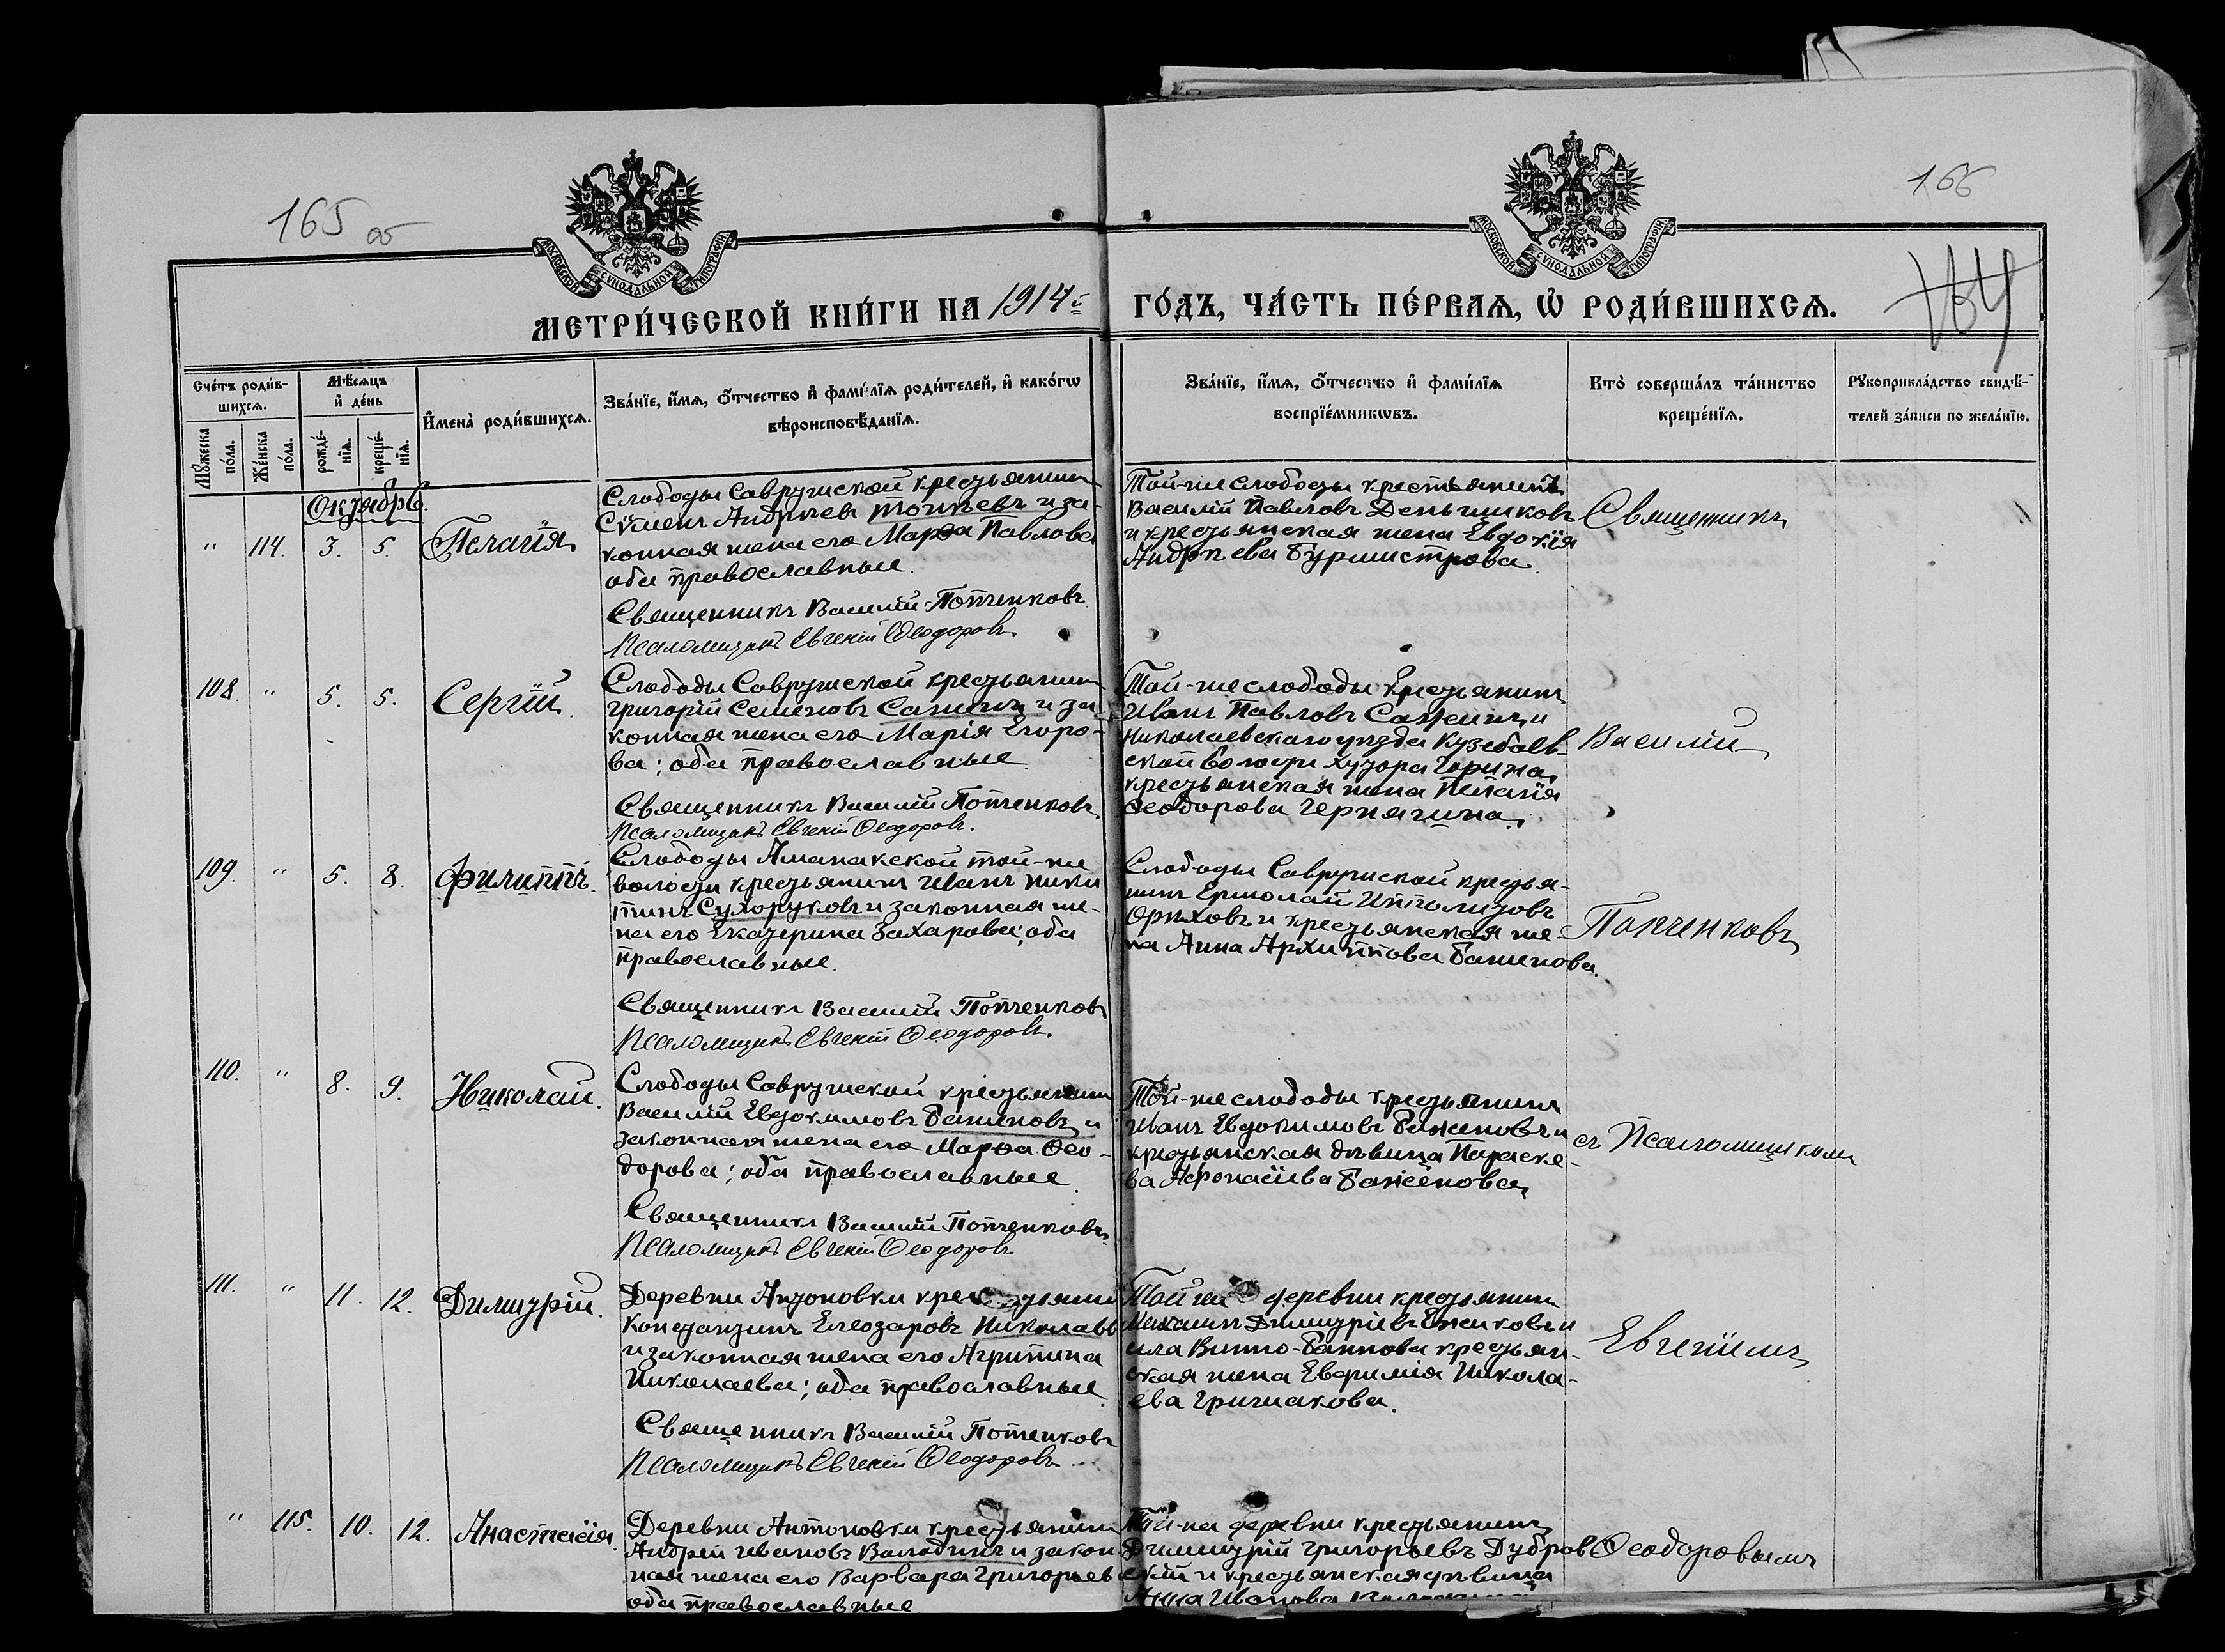 165 об
166
164
МОСКОВСКОЙ СѴНОДАЛЬНОЙ ТИПОГРАФІИ
МОСКОВСКОЙ СѴНОДАЛЬНОЙ ТИПОГРАФІИ
МЕТРИ́ЧЕСКОЙ КНИ́ГИ НА 1914 й
ГО́ДЪ, ЧА́СТЬ ПЕ́РВАѦ, Ѽ РОДИ́ВШИХСѦ.
Сче́тъ роди́в-
шихсѧ.
Мѣ́сѧцъ
и҆ де́нь
Мꙋ́жеска
по́ла.
Же́нска
по́ла.
рожде́-
нїѧ.
креще́-
нїѧ.
И҆мена̀ роди́вшихсѧ.
Зва́нїе, и҆́мѧ, ѻ҆́тчество и҆ фамы́лїѧ роди́телей, и҆ како́гѡ
вѣроисповѣ́данїѧ.
Зва́нїе, и҆́мѧ, ѻ҆́тчество и҆ фами́лїѧ
воспрїе́мникѡвъ.
Кто̀ соверша́лъ та́инство
креще́нїѧ.
Рꙋкоприкла́дство свидѣ́-
телей за́писи по жела́нїю.
Октябрь.
" 114. 3. 5. Пелагія
Слободы Савружской крестьянинъ
Сѵмеонъ Андреевъ и за-
конная жена его Марѳа Павлова
оба православные.
Священникъ Василій Попченковъ.
Псаломщикъ Евгеній Ѳеодоровъ.
Той-же слободы крестьянинъ
Василій Павловъ Деньщиковъ
и крестьянская жена Евдокія
Андреева Бурмистрова.
Священникъ
108. " 5. 5. Сергій.
Слободы Савружской крестьянинъ
Григорій Семеновъ Сажинъ и за-
конная жена его Марія Егоро-
ва; оба православные
Священникъ Василій Попченковъ.
Псаломщикъ Евгеній Ѳеодоровъ.
Той-же слободы крестьянинъ
Иванъ Павловъ Сажинъ, и
Николаевскаго уѣзда Кузебаев-
ской волости хутора
крестьянская жена Пелагія
Ѳеодорова Чернягина.
Василій
109. " 5. 8. Филиппъ.
Слободы Аманакской той-же
волости крестьянинъ Иванъ Ники
тинъ Сухоруковъ и законная же-
на его Екатерина Захарова; оба
православные.
Священникъ Василій Попченковъ
Псаломщикъ Евгеній Ѳеодоровъ.
Слободы Савружской крестья-
нинъ Ермолай Ипполитовъ
Орѣховъ и крестьянская же-
на Анна Архиппова Баженова.
Попченковъ
110. " 8. 9. Николай.
Слободы Савружской крестьянинъ
Василій Евдокимовъ Баженовъ и
законная жена его Марѳа Ѳео-
дорова; оба православные.
Священникъ Василій Попченковъ.
Псаломщикъ Евгеній Ѳеодоровъ
Той-же слободы крестьянинъ
Иванъ Евдокимовъ Баженовъ и
крестьянская дѣвица Параске-
ва Афонасіева Баженова
съ Псаломщикомъ
111. " 11. 12. Димитрій.
Деревни Антоновки крестьянинъ
Константинъ Елеозаровъ
и законная жена его Агрипина
Николаева; оба православные.
Священникъ Василій Попченковъ
Псаломщикъ Евгеній Ѳеодоровъ.
Той же деревни крестьянинъ
Димитріевъ и
села крестьян-
ская жена Евфимія Никола-
ева
Евгеніемъ
" 115. 10. 12. Анастасія.
Деревни Антоновки крестьянинъ
Андрей Ивановъ Володинъ и закон
ная жена его Варвара Григорьев
оба православные
Той-же деревни крестьянинъ
Димитрій Григорьевъ Дубров
скій и крестьянская дѣвица
Анна Иванова
Ѳеодоровымъ